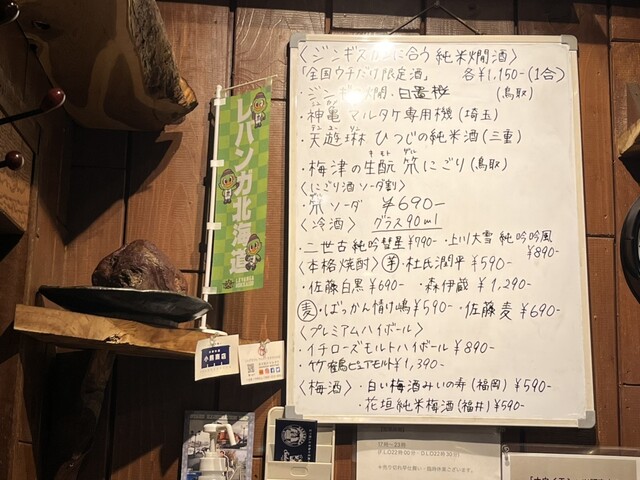 〈ジンギスカンに合う純米燗酒〉
「全国ウチだけ限定酒」 各¥1,150-(1合)
・ジンギス燗・日置桜 (鳥取)
・神亀 マルタケ専用機(埼玉)
・天遊琳 ひつじの純米酒(三重)
・梅津の生酛 笊にごり(鳥取)
〈にごり酒ソーダ割〉
・笊ソーダ ¥690-
〈冷酒〉 グラス90ml
・二世古純吟彗星¥790- ・上川大雪 純吟吟風 ¥890-
〈本格焼酎〉 芋・杜氏潤平¥590-
・佐藤白黒¥690- ・森伊蔵 ¥1,290-
麦・ばっかん情け嶋¥590- ・佐藤麦¥690-
〈プレミアムハイボール〉
・イチローズモルトハイボール¥890-
・竹鶴ピュアモルト¥1,390-
〈梅酒〉・白い梅酒みいの寿(福岡)¥590-
・花垣純米梅酒(福井)¥590-
レバンガ北海道